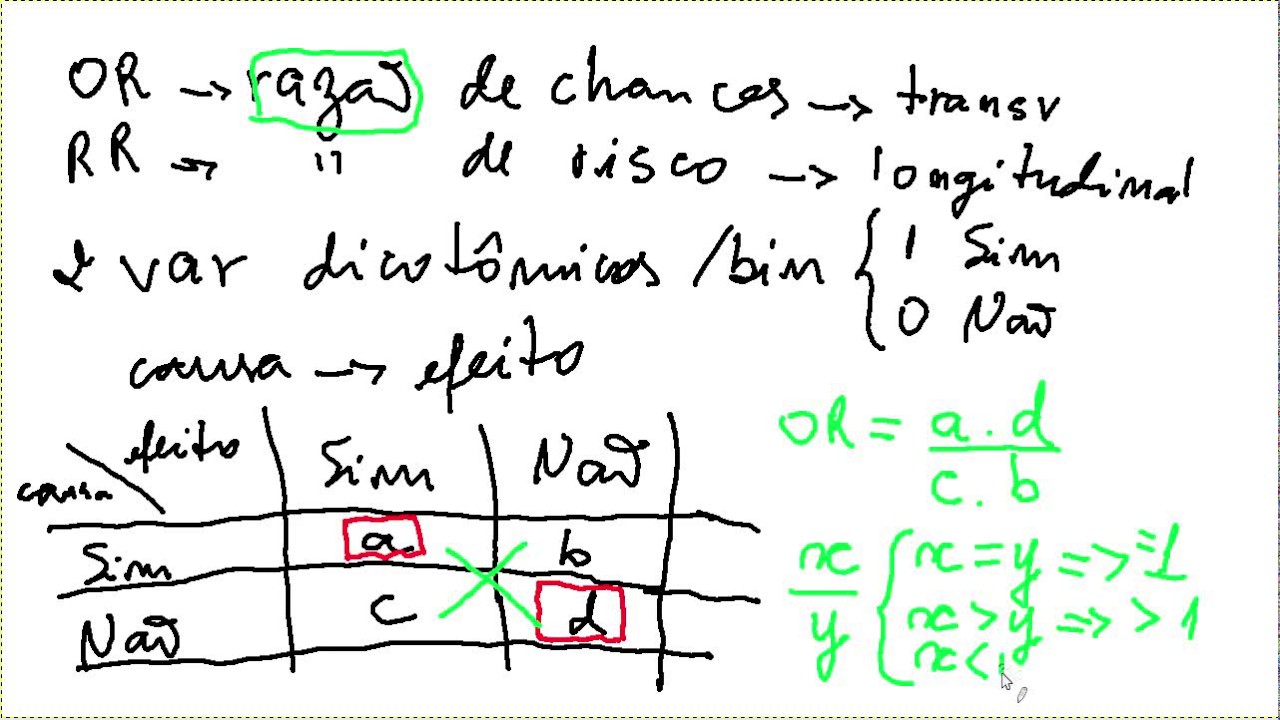 OR → razão de chances → transv
RR → " de risco → longitudinal
2 var dicotômicas / bin { 1 Sim
0 Não
causa → efeito
efeito Sim Não
causa
Sim a b
Não c d
OR = a . d
c . b
x
y
{ x = y => =1
x > y => > 1
x <